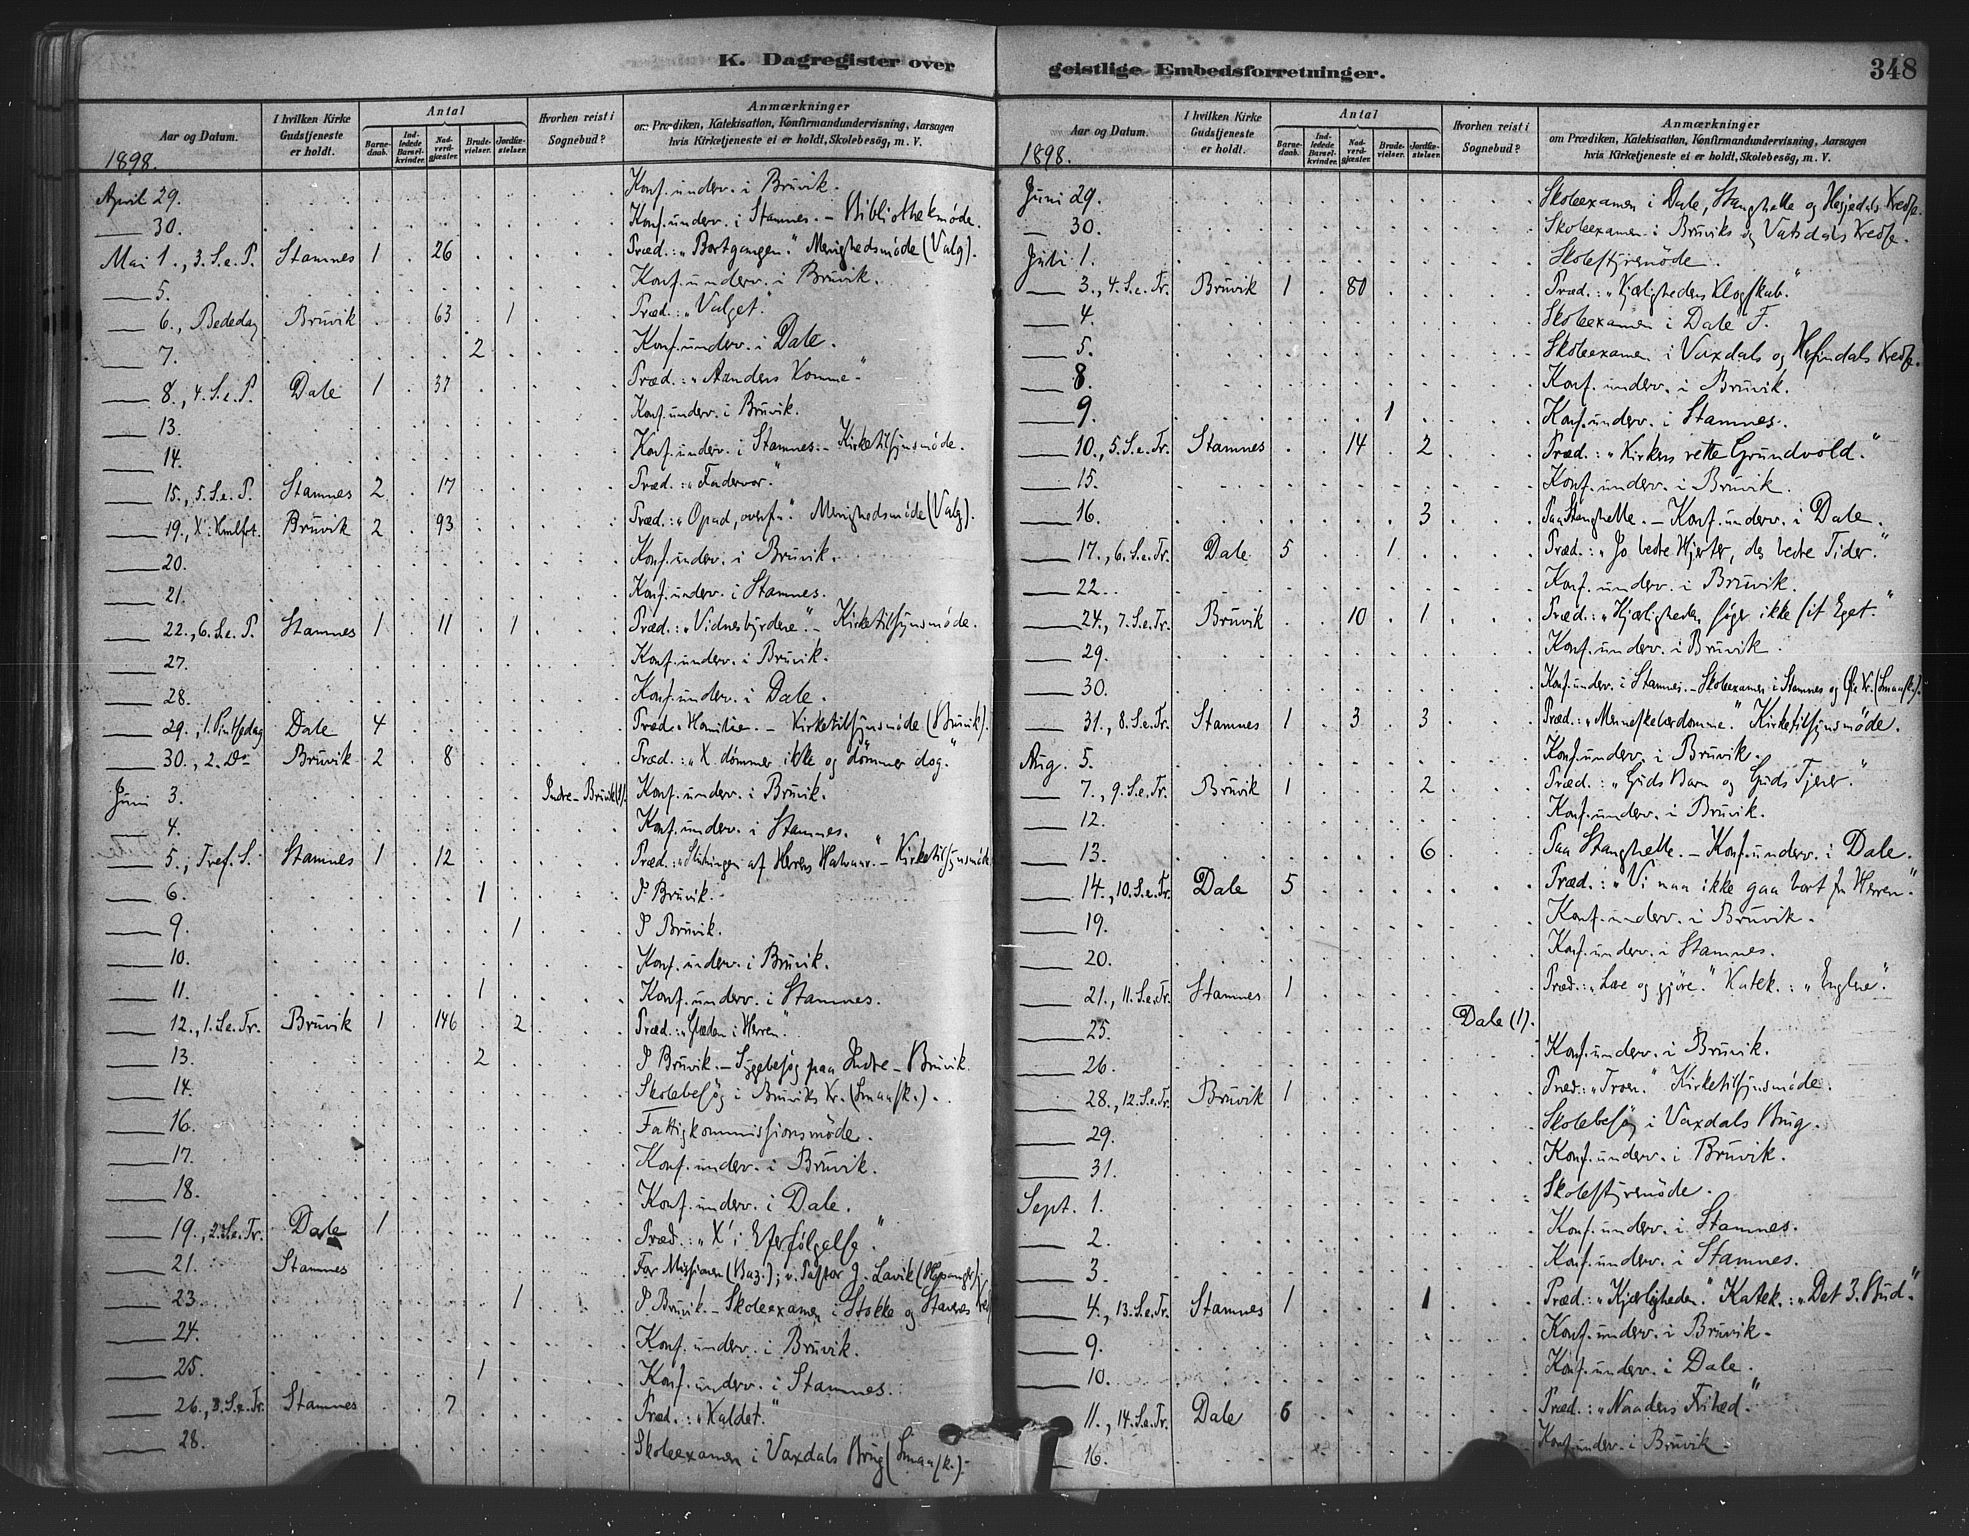 K. Dagregister over
Aar og Datum.
I hvilken Kirke Gudstjeneste er holdt.
Antal
Barnedaab.
Indledede Barselkvinder.
Nadverdgjæster.
Brudevielser.
Jordfæstelser.
Hvorhen reist i Sognebud?
Anmærkninger
om Prædiken, Katekisation, Konfirmandundervisning, Aarsagen
hvis Kirketjeneste ei er holdt, Skolebesøg, m. V.
1898.
April 29. Konf. underv. i Bruvik.
30. Konf. underv. i Stamnes. – Bibliothekmøde.
Mai 1., 3. S. e. P. Stamnes 1 26 Præd.: „Bortgangen.“ Menighedsmøde (Valg).
5. Konf. underv. i Bruvik.
6., Bededag Bruvik 63 1 Præd.: „Valget.“
7. 2 Konf. underv. i Dale.
8., 4. S. e. P. Dale 1 37 Præd.: „Aandens Komme“
13. Konf. underv. i Bruvik.
14. Konf. underv. i Stamnes. – Kirketilsynsmøde.
15., 5. S. e. P. Stamnes 2 17 Præd.: „Fadervor“
19., X i Hmlfrt. Bruvik 2 93 Præd.: „Opad, “ Menighedsmøde (Valg).
20. Konf. underv. i Bruvik.
21. Konf. underv. i Stamnes.
22., 6. S. e. P. Stamnes 1 11 1 Præd.: „Vidnesbyrdene“. – Kirketilsynsmøde.
27. Konf. underv. i Bruvik.
28. Konf. underv. i Dale.
29., 1. Pintsedag Dale 4 Præd. Homilie. – Kirketilsynsmøde (Bruvik).
30., 2. Do Bruvik 2 8 Præd.: „X dømmer ikke og dømmer dog.“
Juni 3. Indre-Bruvik (1). Konf. underv. i Bruvik.
4. Konf. underv. i Stamnes.
5., Tref. S. Stamnes 1 12 Præd.: „ af Herrens “ – Kirketilsynsmøde
6. 1 I Bruvik.
9. 1 I Bruvik.
10. Konf. underv. i Bruvik.
11. 1 Konf. underv. i Stamnes.
12., 1. S. e. Tr. Bruvik 1 146 2 Præd.: „Glæden i Herren“.
13. 2 I Bruvik. – Sygebesøg paa Indre-Bruvik.
14. Skolebesøg i Bruviks Kr. (Smaask.).
16. Fattigkommissionsmøde.
17. Konf. underv. i Bruvik.
18. Konf. underv. i Dale.
19., 2. S. e. Tr. Dale 1 Præd.: „X' i Efterfølgelse“
21. Stamnes For Missionen (Baz.); v. Pastor J. Lavik
23. 1 I Bruvik – Skoleexamen i Stokke og
24. Konf. underv. i Bruvik.
25. 1 Konf. underv. i Stamnes.
26., 3. S. e. Tr. Stamnes 7 Præd.: „Kaldet.“
28. Skoleexamen i Vaxdals Brug (Smaask.).
geistlige Embedsforretninger.
348
Aar og Datum.
I hvilken Kirke Gudstjeneste er holdt.
Antal
Barnedaab.
Indledede Barselkvinder.
Nadverdgjæster.
Brudevielser.
Jordfæstelser.
Hvorhen reist i Sognebud?
Anmærkninger
om Prædiken, Katekisation, Konfirmandundervisning, Aarsagen
hvis Kirketjeneste ei er holdt, Skolebesøg, m. V.
1898.
Juni 29. Skoleexamen i Dale, Stanghelle og Hesjedals Kredse.
30. Skoleexamen i Bruviks og Vatsdals Kredse.
Juli 1. Skolestyremøde.
3., 4. S. e. Tr. Bruvik 1 80 Præd.: „Kjærlighedens Klogskab.“
4. Skoleexamen i Dale F.
5. Skoleexamen i Vaxdals og Kredse.
8. Konf. underv. i Bruvik.
9. 1 Konf. underv. i Stamnes.
10., 5. S. e. Tr. Stamnes 14 2 Præd.: „Kirkens rette Grundvold.“
15. Konf. underv. i Bruvik.
16. 3 Paa Stanghelle. – Konf. underv. i Dale.
17., 6. S. e. Tr. Dale 5 1 Præd.: „Jo bedre Hjerter, des bedre Tider.“
22. Konf. underv. i Bruvik.
24., 7. S. e. Tr. Bruvik 10 1 Præd.: „Kjærligheden søger ikke sit Eget.“
29. Konf. underv. i Bruvik.
30. Konf. underv. i Stamnes. – Skoleexamen i Stamnes og Kr. (Smaask.).
31., 8. S. e. Tr. Stamnes 1 3 3 Præd.: „Menneskelærdomme.“ Kirketilsynsmøde.
Aug. 5. Konf. underv. i Bruvik.
7., 9. S. e. Tr. Bruvik 1 2 Præd.: „Guds Barn og Guds Tjener.“
12. Konf. underv. i Bruvik.
13. 6 Paa Stanghelle. – Konf. underv. i Dale.
14., 10. S. e. Tr. Dale 5 Præd.: „Vi maa ikke gaa bort fra Herren“.
19. Konf. underv. i Bruvik.
20. Konf. underv. i Stamnes.
21., 11. S. e. Tr. Stamnes 1 Præd.: „Lære og gjøre.“ Katek.: „Englene“.
25. Dale (1).
26. Konf. underv. i Bruvik.
28., 12. S. e. Tr. Bruvik 1 Præd.: „Troen.“ Kirketilsynsmøde.
29. Skolebesøg i Vaxdals Brug.
31. Konf. underv. i Bruvik.
Sept. 1. Skolestyremøde.
2. Konf. underv. i Stamnes.
3. Konf. underv. i Stamnes.
4., 13. S. e. Tr. Stamnes 1 1 Præd.: „Kjærligheden.“ Katek.: „Det 3. Bud“.
9. Konf. underv. i Bruvik.
10. Konf. underv. i Dale.
11., 14. S. e. Tr. Dale 6 Præd.: „Naadens Frihed“
16. Konf. underv. i Bruvik.